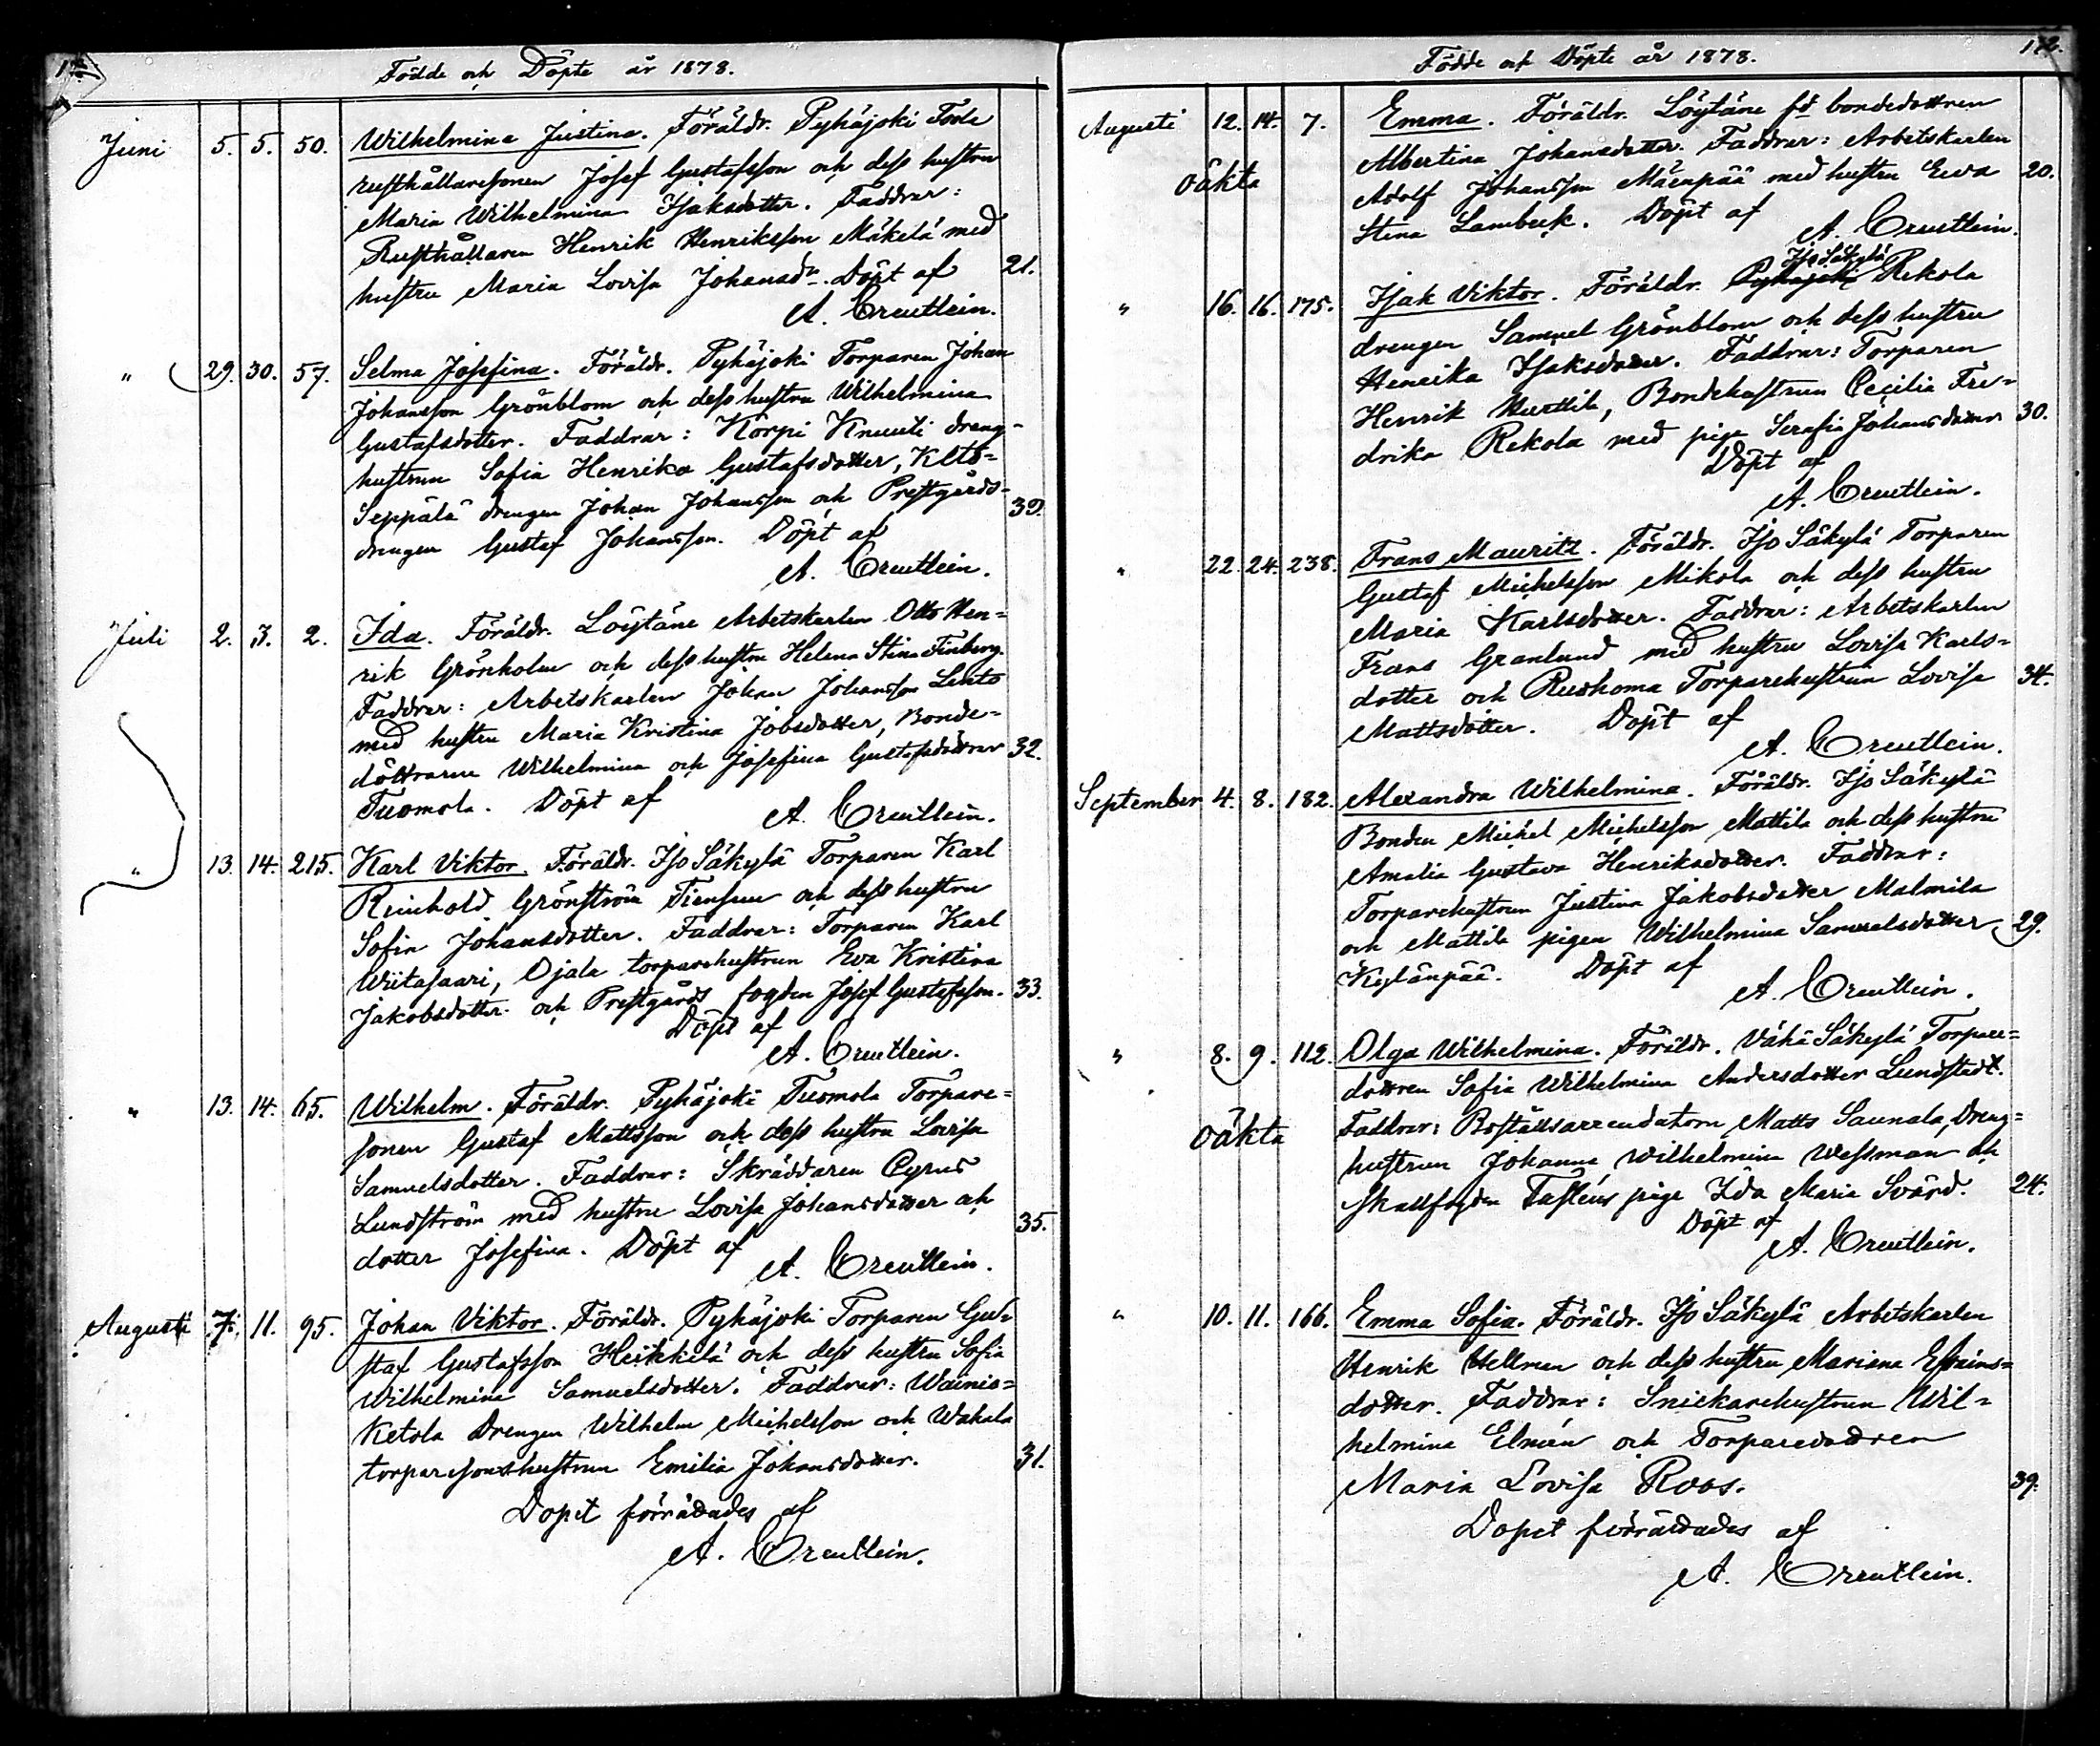 Födde och Döpte år 1878.
Juni 5. 5. 50. Wilhelmina Justina. Föräldr. Pyhäjoki Fode
rusthållaresonen Josef Gustafsson och dess hustru
Maria Wilhelmina Isaksdotter. Faddrar:
Rusthållaren Henrik Henriksson Mäkelä med
hustru Maria Lovisa Johansdr. Döpt af 21.
A. Creutlein.
" 29. 30. 57. Selma Josefina. Föräldr. Pyhäjoki Torparen Johan
Johansson Grönblom och dess hustru Wilhelmina
Gustafsdotter. Faddrar: Korpi Knuuti dreng-
hustrun Sofia Henrika Gustafsdotter,
Seppälä drengen Johan Johansson och Prestgårds- 39.
drengen Gustaf Johansson. Döpt af
A. Creutlein.
Juli 2. 3. 2. Ida. Föräldr. Löytäne Arbetskarlen Otto Hen-
rik Grönholm och dess hustru Helena Stina Finberg.
Faddrar: Arbetskarlen Johan Johansson Lehto
med hustru Maria Kristina Jobsdotter, Bonde-
döttrarne Wilhelmina och Josefina Gustafsdöttrar 32.
Tuomola. Döpt af
A. Creutlein.
" 13. 14. 215. Karl Viktor. Föräldr. Iso Säkylä Torparen Karl
Reinhold Grönström Tiensuu och dess hustru
Sofia Johansdotter. Faddrar: Torparen Karl
Wiitasaari, Ojala torparehustrun Eva Kristina
Jakobsdotter och Prestgårds fogden Josef Gustafsson. 33.
Döpt af
A. Creutlein.
" 13. 14. 65. Wilhelm. Föräldr. Pyhäjoki Tuomola Torpare-
sonen Gustaf Mattsson och dess hustru Lovisa
Samuelsdotter. Faddrar: Skräddaren Cyrus
Lundström med hustru Lovisa Johansdotter och 35.
dotter Josefina. Döpt af
A. Creutlein.
Augusti 7. 11. 95. Johan Viktor. Föräldr. Pyhäjoki Torparen Gu-
staf Gustafsson Heikkilä och dess hustru Sofia
Wilhelmina Samuelsdotter. Faddrar: Wainio-
Ketola Drengen Wilhelm Michelsson och Wakala
torparesonshustrun Emilia Johansdotter. 31.
Dopet förrättades af
A. Creutlein.
Födde och Döpte år 1878. 172.
Augusti 12. 14. 7. Emma. Föräldr. Löytäne fd bondedottren
Albertina Johansdotter. Faddrar: Arbetskarlen
oäkta Adolf Johansson Mäenpää med hustru Ewa 20.
Stina Lambeck. Döpt af
A. Creutlein.
Iso Säkylä
" 16. 16. 175. Isak Viktor. Föräldr. Pyhäjoki Rekola
drengen Samuel Grönblom och dess hustru
Henrika Isaksdotter. Faddrar: Torparen
Henrik Hurttila, Bondehustrun Cecilia Fre-
drika Rekola med piga Serafia Johansdotter 30.
Döpt af
A. Creutlein.
" 22. 24. 238. Frans Mauritz. Föräldr. Iso Säkylä Torparen
Gustaf Michelsson Mikola och dess hustru
Maria Karlsdotter. Faddrar: Arbetskarlen
Frans Granlund med hustru Lovisa Karls-
dotter och Ruohoma Torparehustrun Lovisa 34.
Mattsdotter. Döpt af
A. Creutlein.
September 4. 8. 182. Alexandra Wilhelmina. Föräldr. Iso Säkylä
Bonden Michel Michelsson Mattila och dess hustru
Amalia Gustava Henriksdotter. Faddrar:
Torparehustrun Justina Jakobsdotter Malmila
och Mattila pigan Wilhelmina Samuelsdotter 29.
Kylänpää. Döpt af
A. Creutlein.
" 8. 9. 112. Olga Wilhelmina. Föräldr. Vähä Säkylä Torpare-
dottren Sofia Wilhelmina Andersdotter Lundstedt.
oäkta Faddrar: Boställsarrendatorn Matts Saunala, Dreng-
hustrun Johanna Wilhelmina Wessman och
Skallfogden Tasténs piga Ida Maria Svärd. 24.
Döpt af
A. Creutlein.
" 10. 11. 166. Emma Sofia. Föräldr. Iso Säkylä Arbetskarlen
Henrik Hellman och dess hustru Mariana Efraims-
dotter. Faddrar: Snickarehustrun Wil-
helmina Elmén och Torparedottren
Maria Lovisa Roos. 39.
Dopet förrättades af
A. Creutlein.